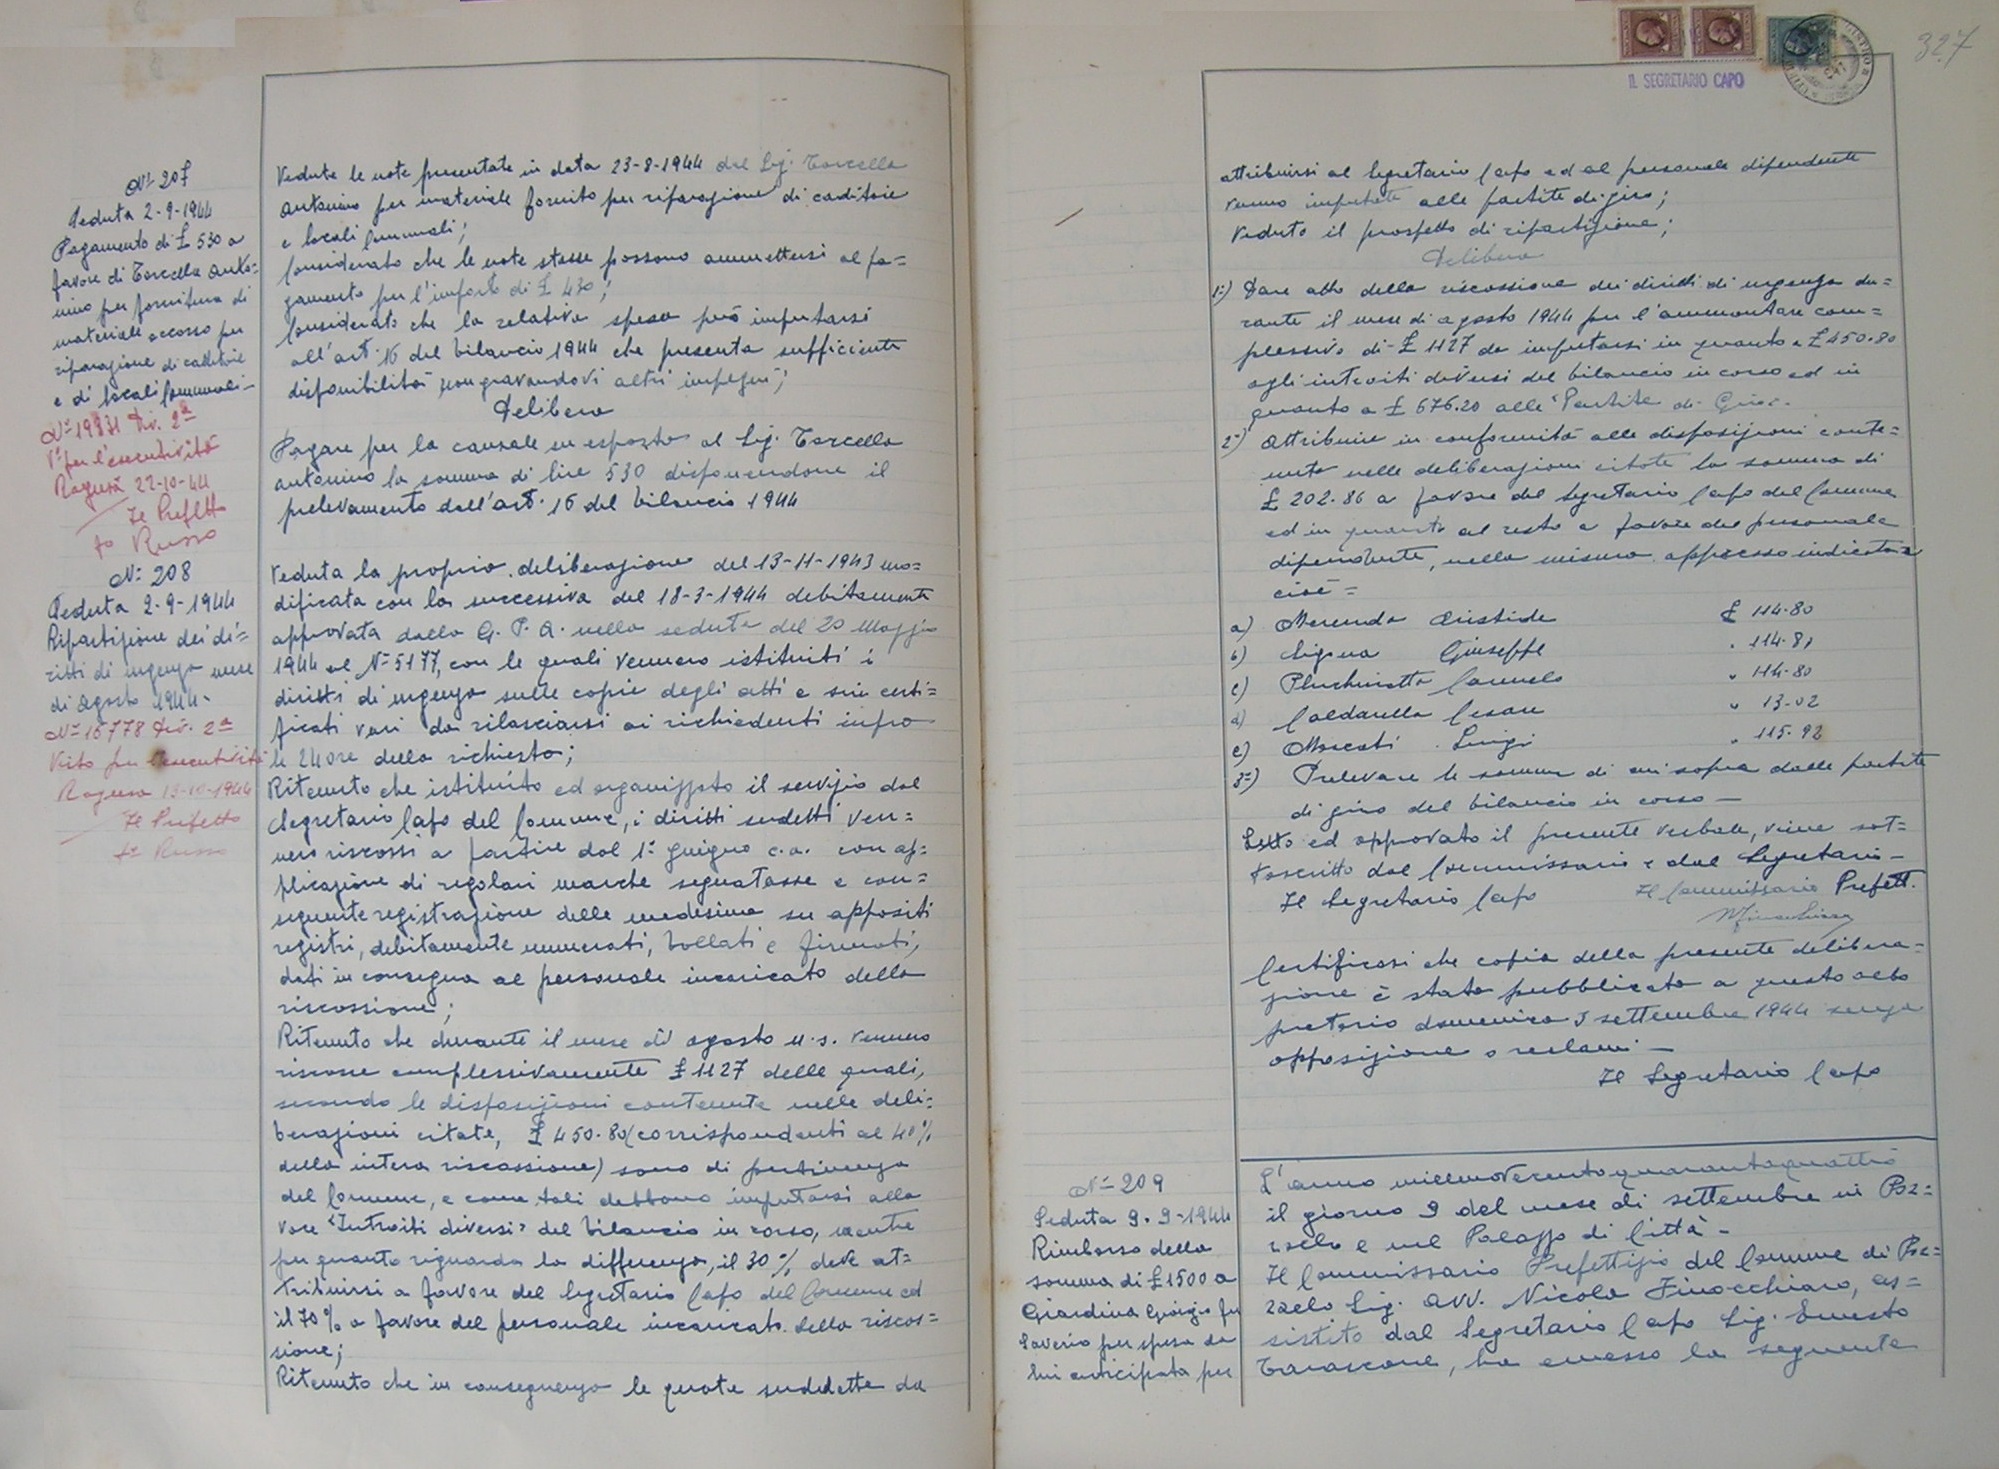 N° 207
Seduta 2-9-1944
Pagamento di £ 530 a
favore di Torcella Anto=
nino per fornitura di
materiale occorso per
riparazione di caditoie
e di locali comunali -
N° 19831 Div. 2ª
Vº per l'esecutività
Ragusa 22-10-44
Il Prefetto
fº Russo
Vedute le note presentate in data 23-8-1944 dal Sig. Torcella
Antonino per materiale fornito per riparazione di caditoie
e locali comunali;
Considerato che le note stesse possono ammettersi al pa=
gamento per l'importo di £ 430;
Considerato che la relativa spesa può imputarsi
all'art. 16 del bilancio 1944 che presenta sufficiente
disponibilità non gravandovi altri impegni;
Delibera
Pagare per la causale su esposta al Sig. Torcella
Antonino la somma di lire 530 disponendone il
prelevamento dall'art. 16 del bilancio 1944
N° 208
Seduta 2-9-1944
Ripartizione dei di=
ritti di urgenza mese
di Agosto 1944-
N° 16778 Div. 2ª
Visto per l'esecutività
Ragusa 13-10-1944
Il Prefetto
fº Russo
Veduta la propria deliberazione del 13-11-1943 mo=
dificata con la successiva del 18-3-1944 debitamente
approvata dalla G. P. A. nella seduta del 20 Maggio
1944 al N° 5177, con le quali vennero istituiti i
diritti di urgenza sulle copie degli atti e sui certi=
ficati vari da rilasciarsi ai richiedenti infra
le 24 ore della richiesta;
Ritenuto che istituito ed organizzato il servizio dal
Segretario Capo del Comune, i diritti sudetti ven=
nero riscossi a partire dal 1° giugno c.a. con ap=
plicazione di regolari marche segnatasse e con=
seguente registrazione delle medesime su appositi
registri, debitamente numerati, bollati e firmati,
dati in consegna al personale incaricato della
riscossione;
Ritenuto che durante il mese di agosto u.s. vennero
riscosse complessivamente £ 1127 delle quali,
secondo le disposizioni contenute nelle deli=
berazioni citate, £ 450.80 (corrispondenti al 40%
della intera riscossione) sono di pertinenza
del Comune, e come tali debbono imputarsi alla
voce "Introiti diversi" del bilancio in corso, mentre
per quanto riguarda la differenza, il 30% deve at=
tribuirsi a favore del Segretario Capo del Comune ed
il 70% a favore del personale incaricato della riscos=
sione;
Ritenuto che in conseguenza le quote sudedette da
327
IL SEGRETARIO CAPO
attribuirsi al Segretario Capo ed al personale dipendente
vanno imputate alle partite di giro;
Veduto il prospetto di ripartizione;
Delibera
1°) Dare atto della riscossione dei diritti di urgenza du=
rante il mese di agosto 1944 per l'ammontare com=
plessivo di £ 1127 da imputarsi in quanto a £ 450.80
agli introiti diversi del bilancio in corso ed in
quanto a £ 676.20 alle "Partite di Giro".
2°) Attribuire in conformità alle disposizioni conte=
nute nelle deliberazioni citate la somma di
£ 202.86 a favore del Segretario Capo del Comune
ed in quanto al resto a favore del personale
dipendente, nella misura appresso indicata
cioè =
a) Merenda Aristide £ 114.80
b) Ligna Giuseppe " 114.81
c) Pluchinotta Carmelo " 114.80
d) Caldarella Cesare " 13.02
e) Moscati Luigi " 115.92
3°) Prelevare le somme di cui sopra dalle partite
di giro del bilancio in corso -
Letto ed approvato il presente verbale, viene sot=
toscritto dal Commissario e dal Segretario -
Il Segretario Capo Il Commissario Prefett.
Certificasi che copia della presente delibera=
zione è stata pubblicata a questo albo
pretorio domenica 3 settembre 1944 senza
opposizione o reclami -
Il Segretario Capo
N° 209
Seduta 9-9-1944
Rimborso della
somma di £ 1500 a
Giardina Giorgio fu
Saverio per spese da
lui anticipata per
L'anno millenovecentoquarantaquattro
il giorno 9 del mese di settembre in Poz=
zallo e nel Palazzo di Città -
Il Commissario Prefettizio del Comune di Poz=
zallo Sig. Avv. Nicola Finocchiaro, as=
sistito dal Segretario Capo Sig. Ernesto
Tarascone, ha emesso la seguente